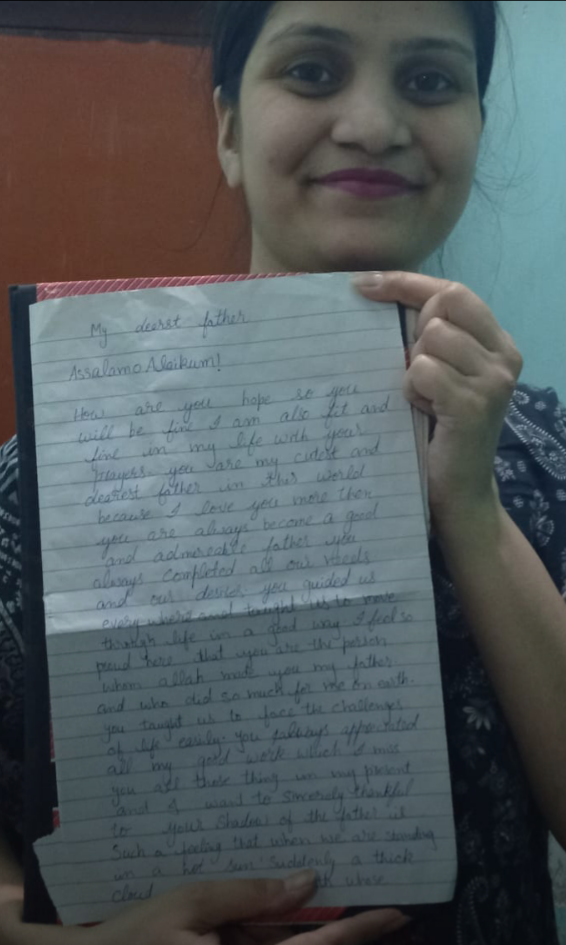 My deerst father
Assalamo Alaikum!
How are you hope so you
will be fine I am also fit and
fine in my life with your
prayers. you are my cutest and
dearest father in this world
because I love you more then
you are always become a good
and admireable father you
always completed all our needs
and our desires. you guided us
every where and taught us to move
through life in a good way I feel so
proud here that you are the person
whom allah made you my father
and who did so much for me on earth.
you taught us to face the challenges
of life easily. you always appreciated
all my good work which I miss
you all those thing in my present
and I want to sincerely thankful
to your shadow of the father is
Such a feeling that when we are standing
in a hot sun Suddenly a thick
cloud whose